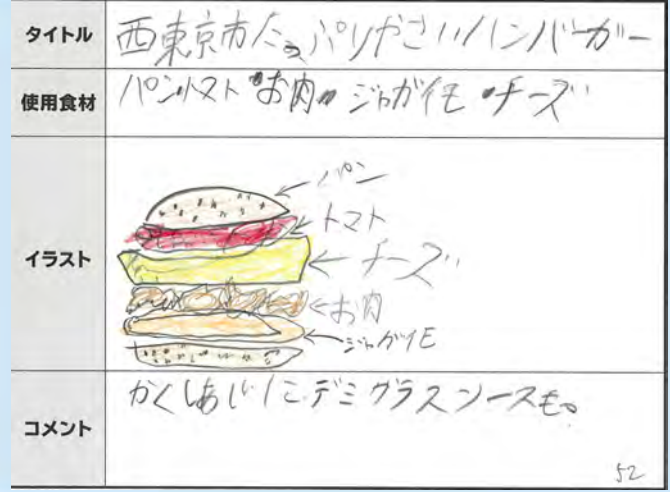 タイトル 西東京市たっぷりやさいハンバーガー
使用食材 パン・トマト・お肉・ジャガイモ・チーズ
イラスト
パン
トマト
チーズ
お肉
ジャガイモ
コメント かくしあじに、デミグラスソースも。
52